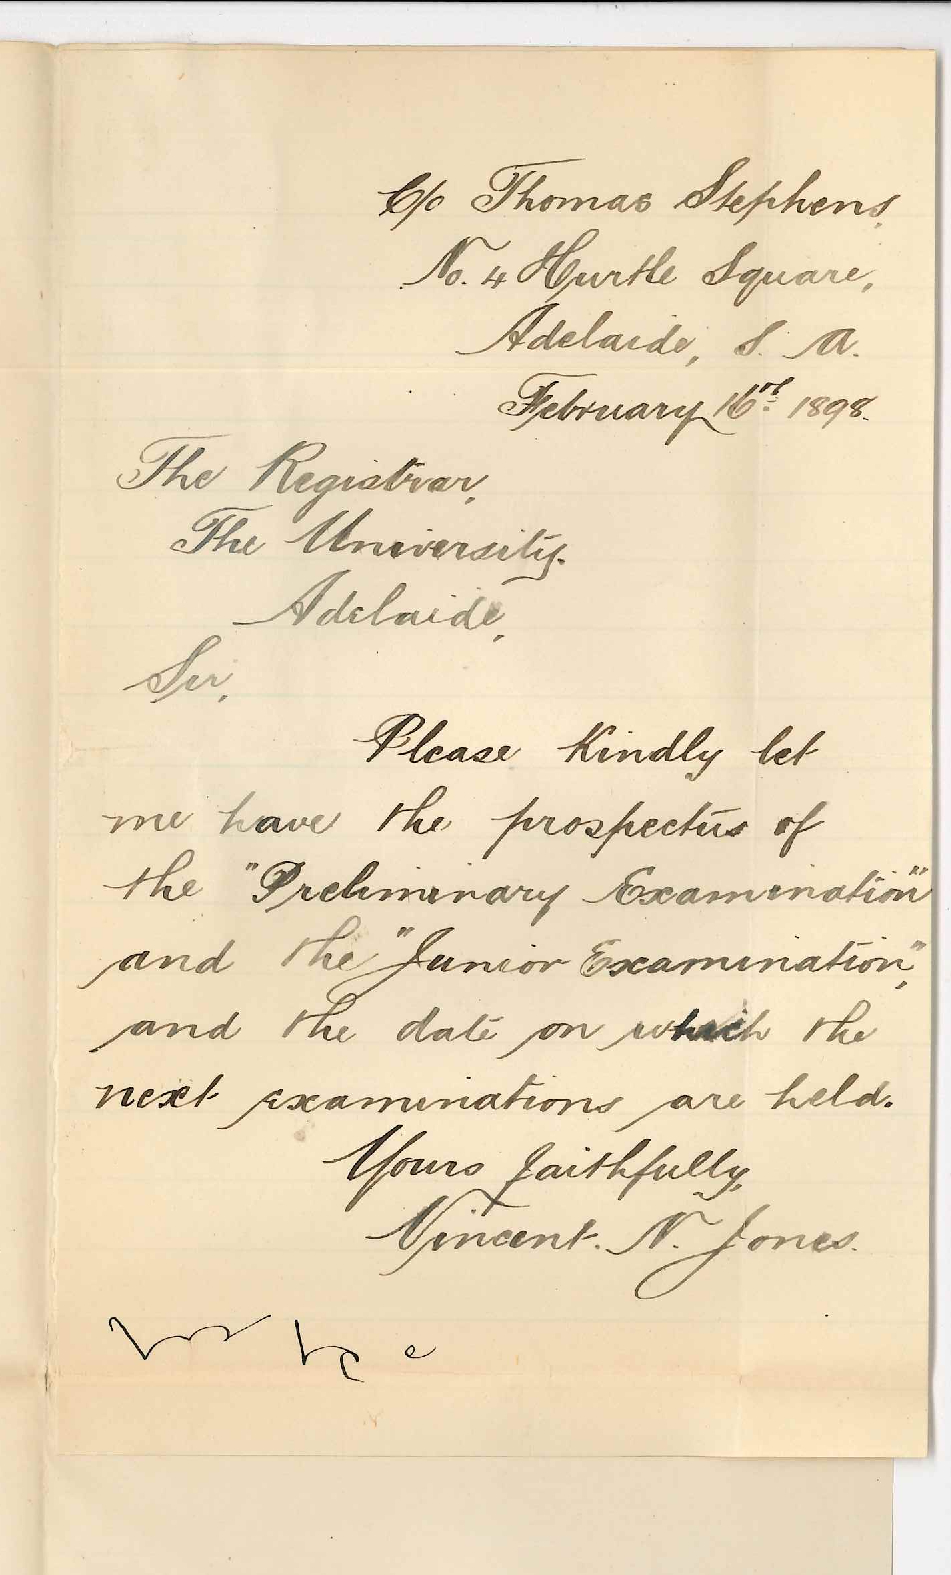 C/o Thomas Stephens,
No. 4 Hurtle Square,
Adelaide, S. A.
February 16rd. 1898.
The Registrar,
The University.
Adelaide,
Sir,
Please Kindly let
me have the prospectus of
the "Preliminary Examination"
and the "Junior Examination",
and the date on which the
next examinations are held.
Yours faithfully,
Vincent. N. Jones.